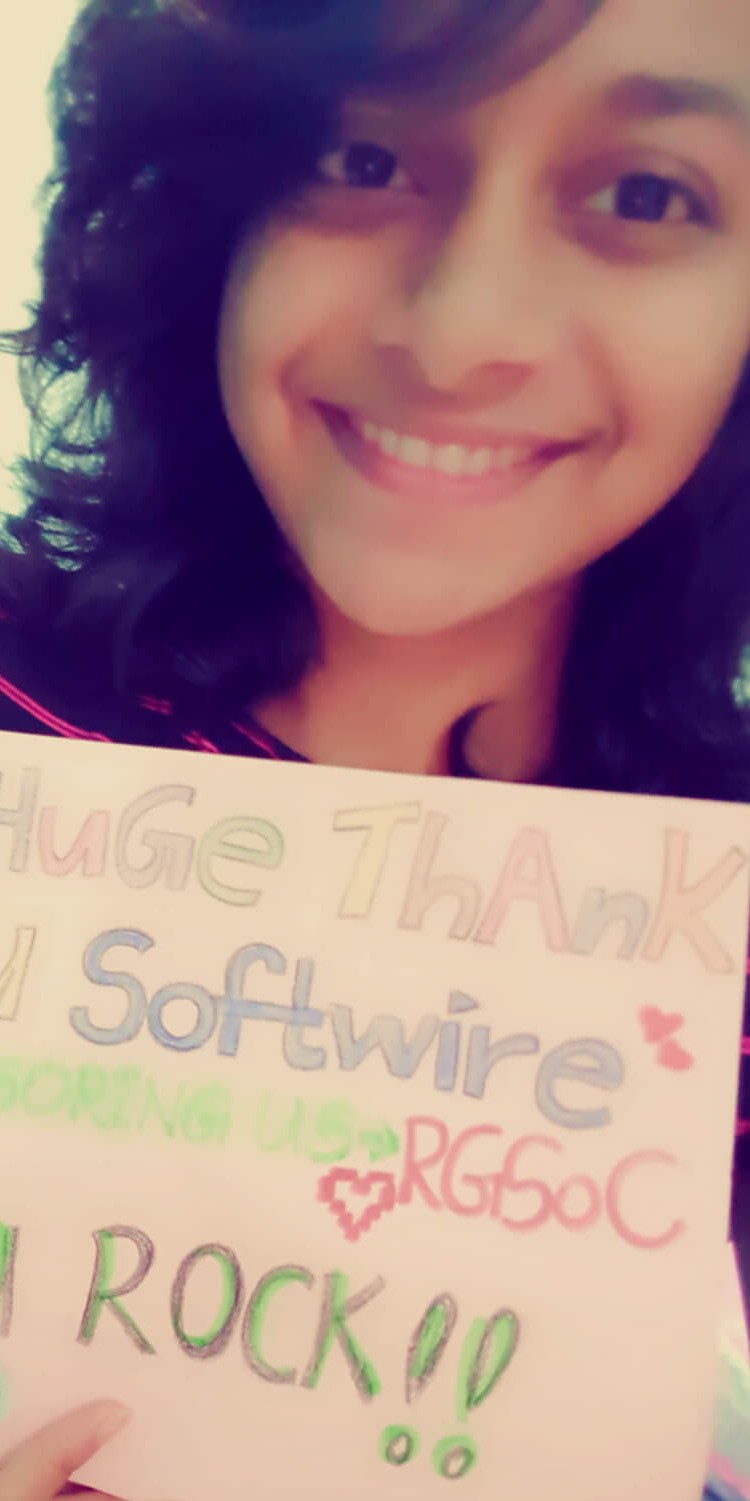 HuGe ThAnK
Softwire
SORING US→ RGSoC
ROCK!!